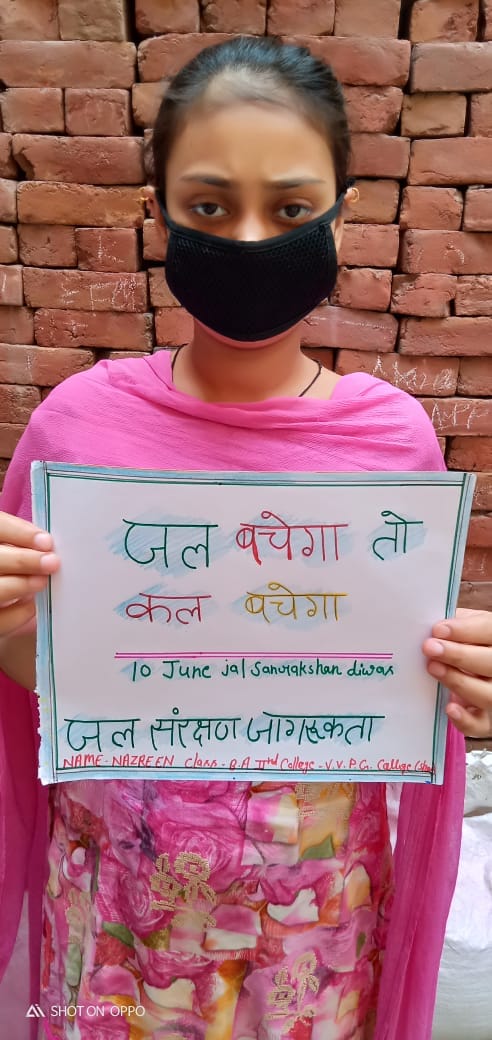 जल बचेगा तो
कल बचेगा
10 June jal Sanrakshan diwas
जल संरक्षण जागरूकता
NAME - NAZREEN Class - B.A IInd College - V.V.P.G. College
SHOT ON OPPO